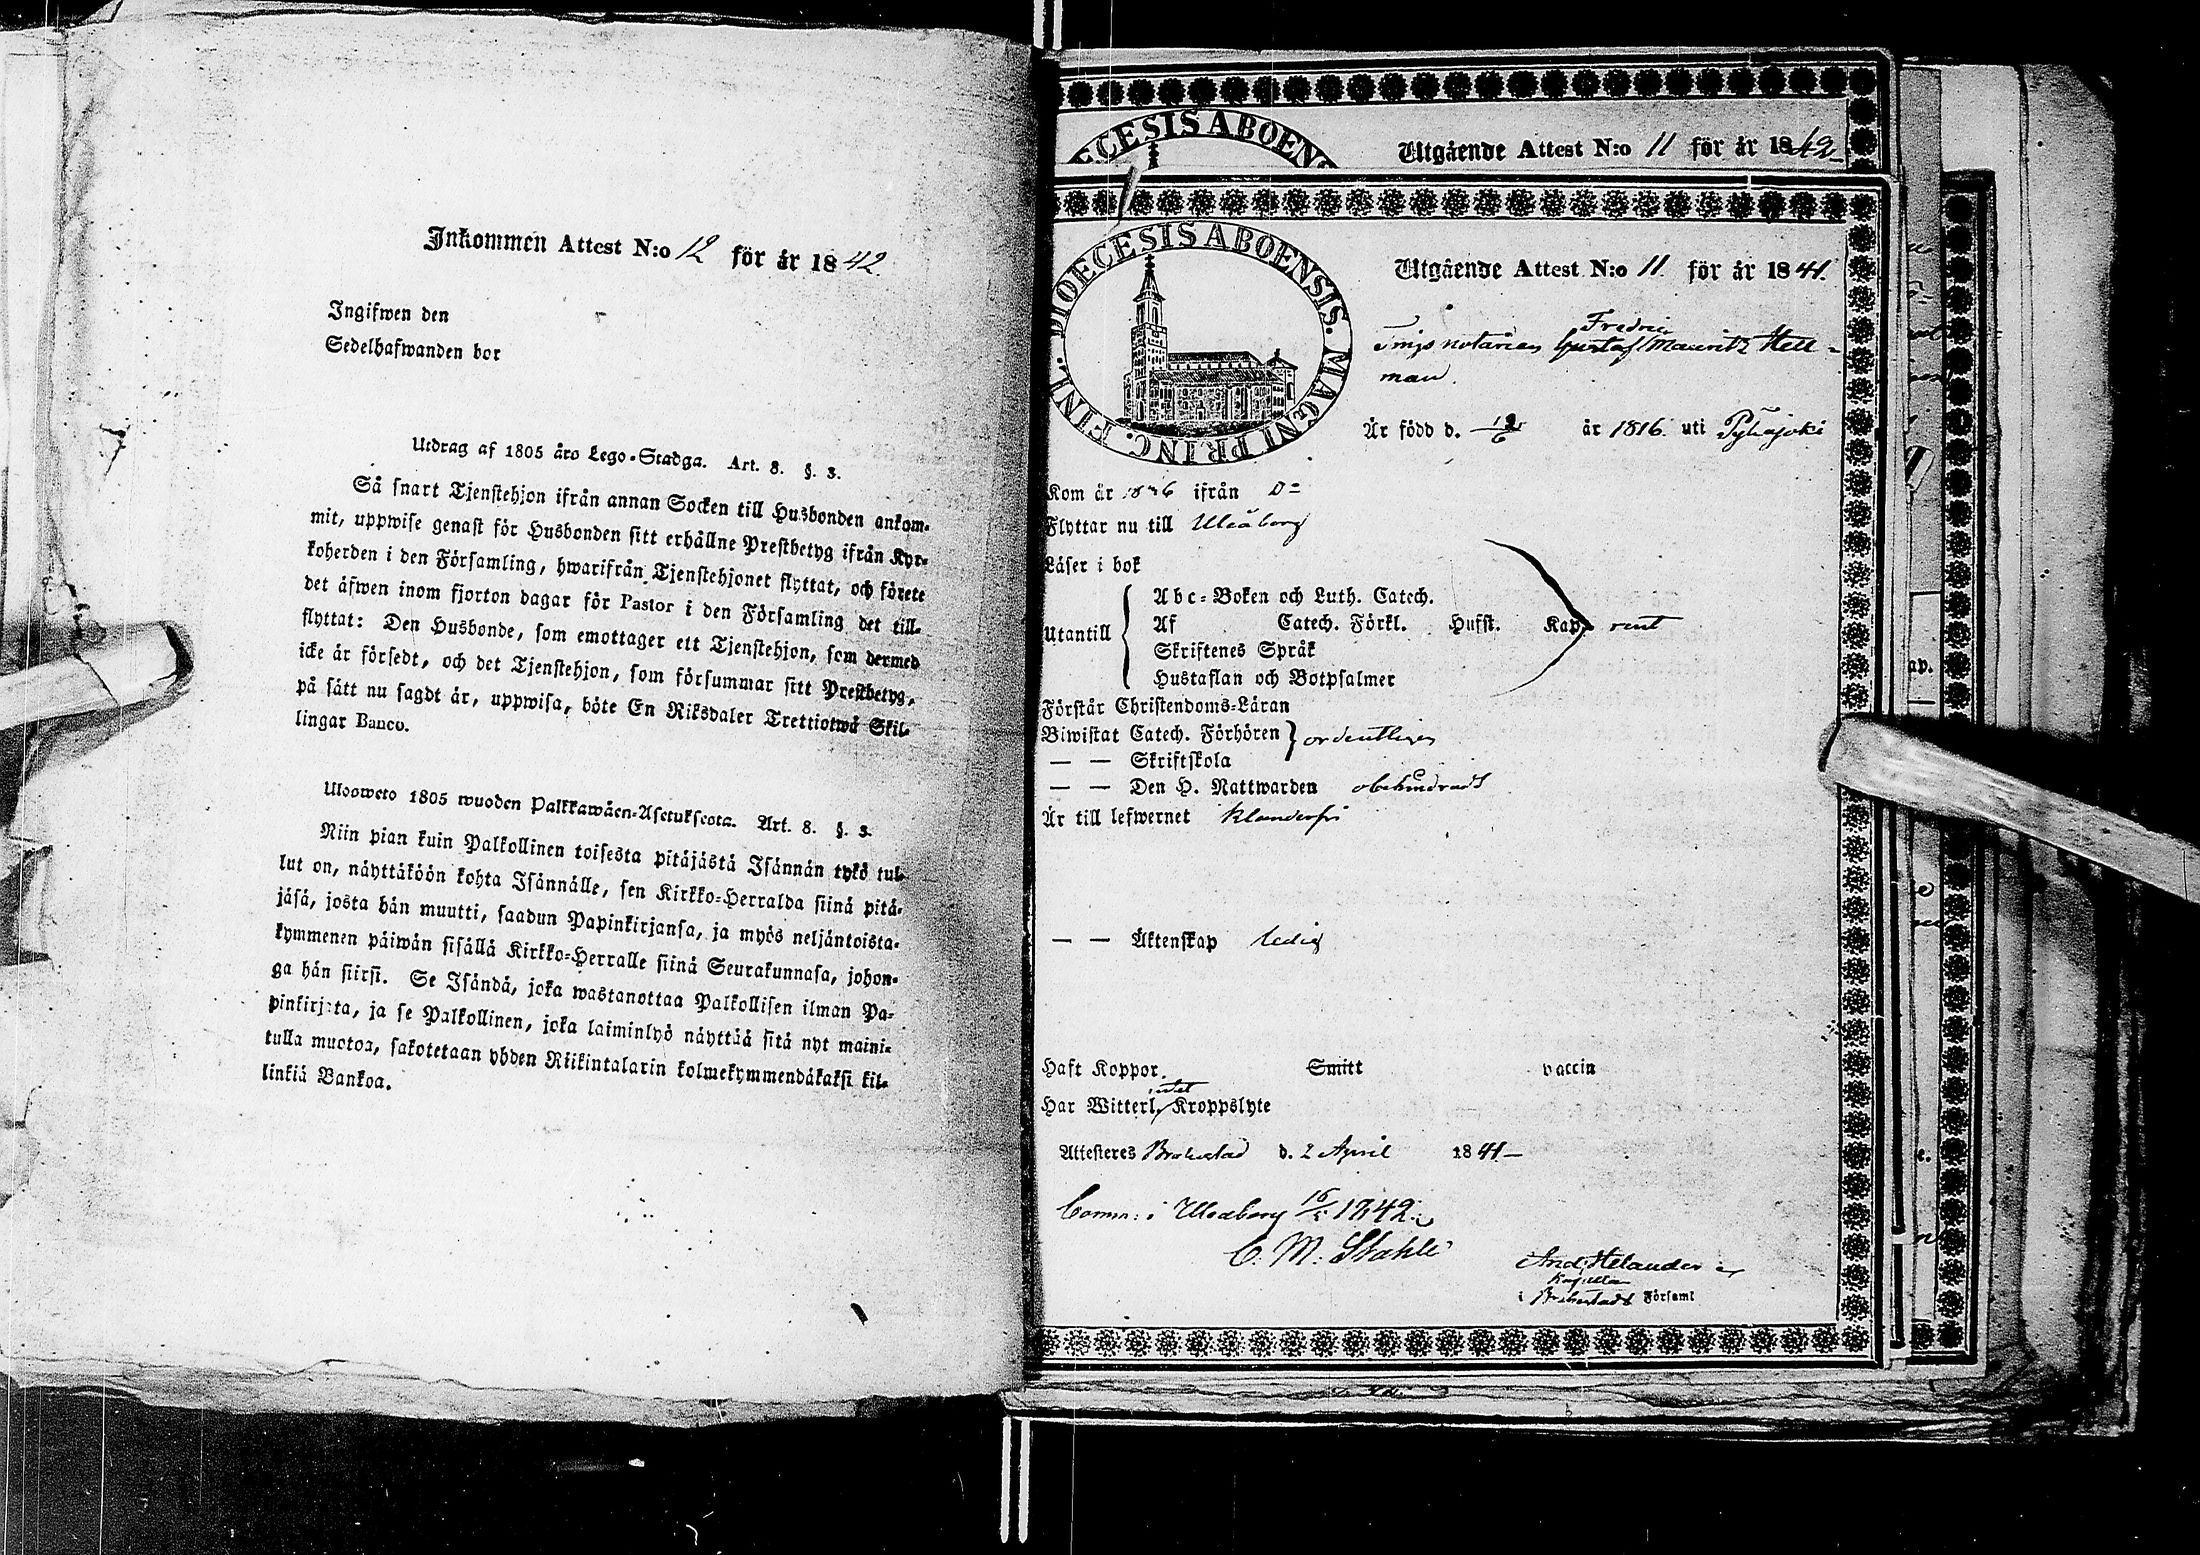 Inkommen Attest N:o 12 för år 1842.
Ingifwen den
Sedelhafwanden bor
Utdrag af 1805 års Lego-Stadga. Art. 8. §. 3.
Så snart Tjenstehjon ifrån annan Socken till Husbonden ankom-
mit, uppwise genast för Husbonden sitt erhållne Prestbetyg ifrån Kyr-
koherden i den Församling, hwarifrån Tjenstehjonet flyttat, och förete
det äfwen inom fjorton dagar för Pastor i den Församling det till-
flyttat: Den Husbonde, som emottager ett Tjenstehjon, som dermed
icke är försedt, och det Tjenstehjon, som försummar sitt Prestbetyg,
på sätt nu sagdt är, uppwisa, böte En Riksdaler Trettiotwå Skil-
lingar Banco.
Ulosweto 1805 wuoden Palkkawäen-Asetuksesta. Art. 8. §. 3.
Niin pian kuin Palkollinen toisesta pitäjästä Isännän tykö tul-
lut on, näyttäköön kohta Isännälle, sen Kirkko-Herralda siinä pitä-
jäsä, josta hän muutti, saadun Papinkirjansa, ja myös neljäntoista-
kymmenen päiwän sisällä Kirkko-Herralle siinä Seurakunnasa, johon-
ga hän siirsi. Se Isändä, joka wastanottaa Palkollisen ilman Pa-
pinkirjata, ja se Palkollinen, joka laiminlyö näyttää sitä nyt maini-
tulla muotoa, sakotetaan yhden Riikintalarin kolmekymmendäkaksi kil-
linkiä Bankoa.
ECESIS ABOENS
Utgående Attest N:o 11 för år 1842
DIOECESIS ABOENSIS. MAGNI PRINC. FINL.
Utgående Attest N:o 11 för år 1841.
Fredric
Tingsnotarien Gustaf Mauritz Hell-
man.
Är född d. år 1816. uti Pyhäjoki
Kom år ifrån D=
Flyttar nu till Uleåborg
Läser i bok
Abc-Boken och Luth. Catech.
Utantill Af Catech. Förkl. Husst. Kap. rent
Skriftenes Språk
Hustaflan och Botpsalmer
Förstår Christendoms-Läran
Biwistat Catech. Förhören ordentligen
— — Skriftskola
— — Den H. Nattwarden obehindradt
Är till lefwernet klanderfri
— — Äktenskap ledig
Haft Koppor. Smitt vaccin
intet
Har Witterl. Kroppslyte
Attesteres Brahestad d. 2 April 1841—
Comm: i Uleaborg 16/5 1842.
C. M. Stahle
And. Helander
i Brahestads Församl